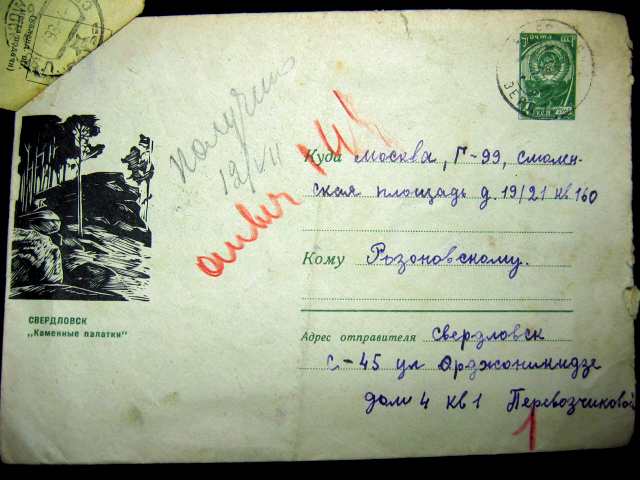 получено
12/XII
ответ
Куда Москва, Г-99, смолен-
ская площадь д. 19/21 кв 160
Кому Рьзоновскому.
СВЕРДЛОВСК
„Каменные палатки“
Адрес отправителя Свердловск
С-45 ул Орджоникидзе
дом 4 кв 1 Перевозчиковой
1
ПОЧТА